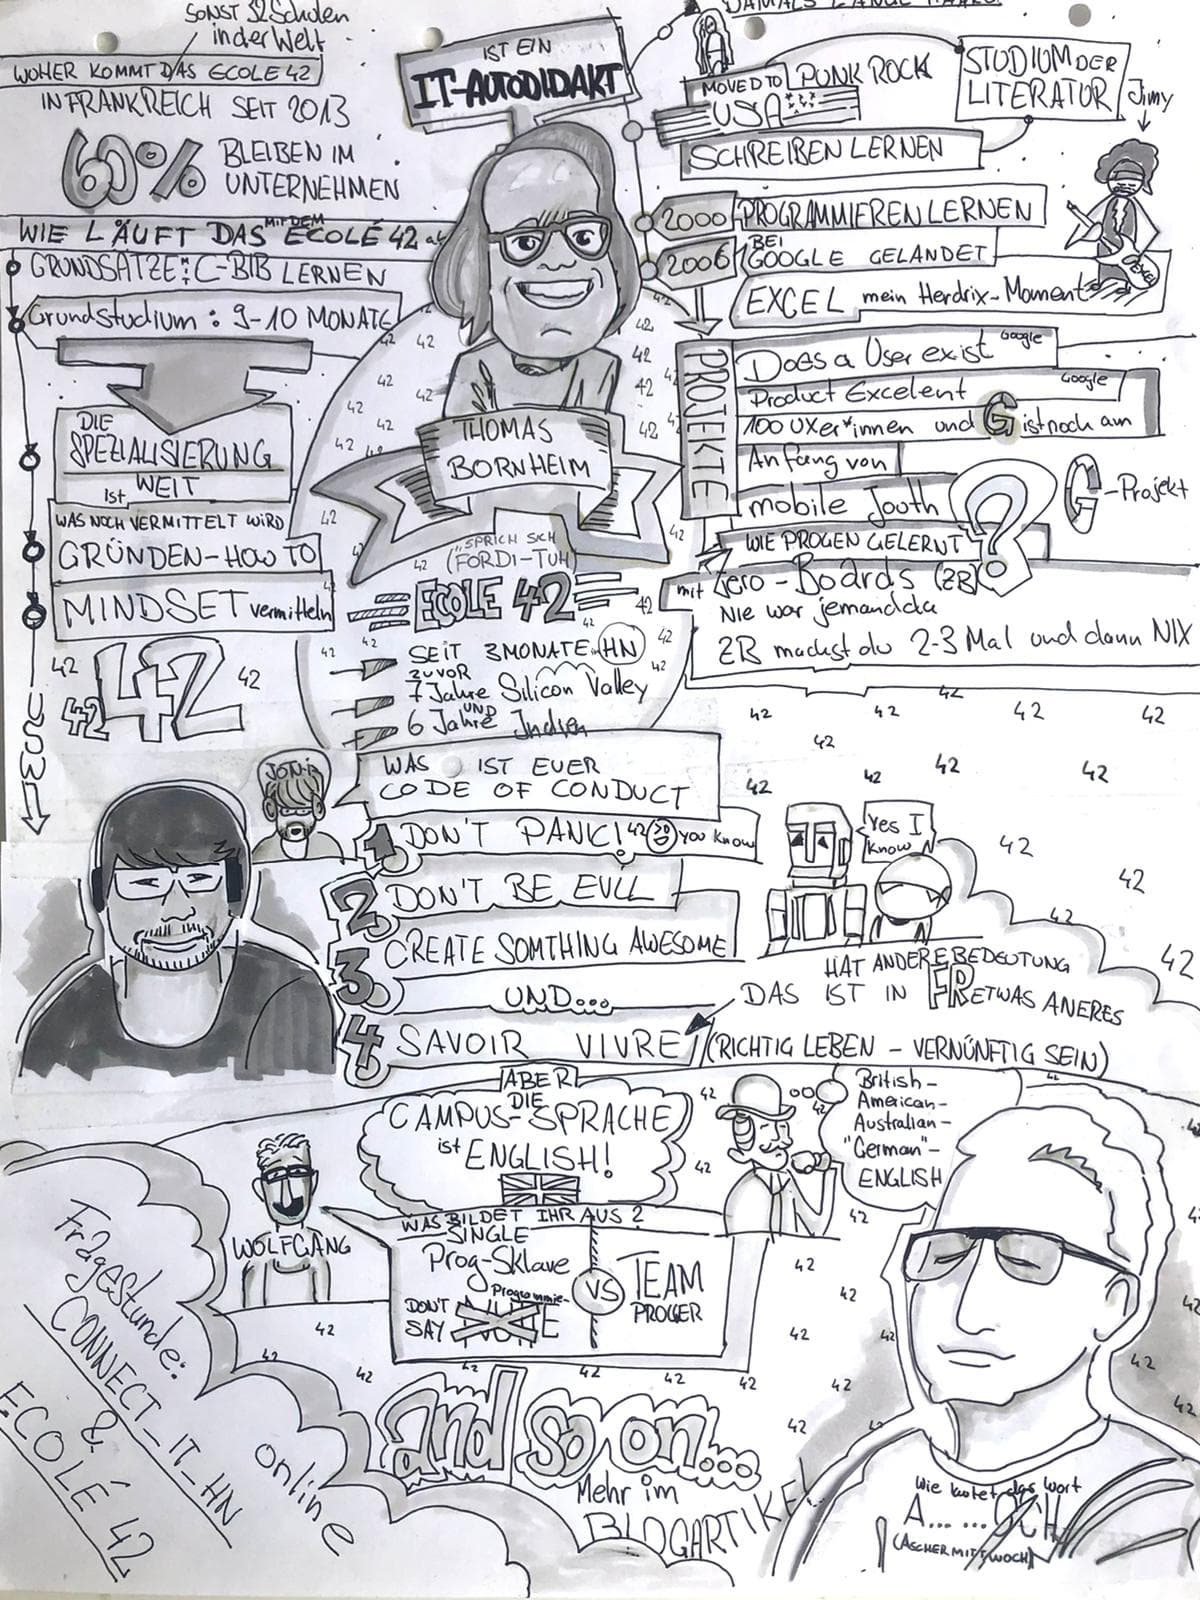 SONST 52 Schulen
in der Welt
WOHER KOMMT DAS ECOLE 42
IN FRANKREICH SEIT 2013
60% BLEIBEN IM
UNTERNEHMEN
WIE LÄUFT DAS MIT DEM ÉCOLÉ 42 ab
GRUNDSÄTZE: C-BIB LERNEN
Grundstudium: 9-10 MONATE
DIE
SPEZIALISIERUNG
ist WEIT
WAS NOCH VERMITTELT WIRD
GRÜNDEN-HOW TO
MINDSET vermitteln
42 42 42
42
USW
IST EIN
IT-AUTODIDAKT
THOMAS
BORNHEIM
"SPRICH SICH
(FORDI-TUH)
ECOLE 42
SEIT 3 MONATE HN
ZUVOR
7 Jahre Silicon Valley
UND
6 Jahre Indien
DAMALS LANGE HAARE
MOVED TO
USA
PUNK ROCK
STUDIUM DER
LITERATUR
Jimy
SCHREIBEN LERNEN
2000 PROGRAMMIEREN LERNEN
2006 BEI
GOOGLE GELANDET
EXCEL mein Herdrix-Moment
EXCEL
PROJEKTE
Does a User exist Google
Product Excelent Google
100 UXer*innen und G ist noch am
Anfang von
mobile Jouth
? G-Projekt
WIE PROGEN GELERNT
mit Zero-Boards (ZB)
NIE war jemand da
ZB machst du 2-3 Mal und dann NIX
JON-i
WAS IST EUER
CODE OF CONDUCT
1 DON'T PANIC! 42 you know
Yes I
know
2 DON'T BE EVIL
3 CREATE SOMTHING AWESOME
UND...
4 SAVOIR VIVRE (RICHTIG LEBEN - VERNÜNFTIG SEIN)
HAT ANDERE BEDEUTUNG
DAS IST IN FR ETWAS ANERES
ABER
DIE
CAMPUS-SPRACHE
ist ENGLISH!
British-
American-
Australian-
"German"-
ENGLISH
WOLFGANG
WAS BILDET IHR AUS?
SINGLE
Prog-Sklave
VS
TEAM
PROGGER
Programmie-
DON'T
SAY
Fragestunde:
CONNECT_IT_HN
&
ECOLÉ 42
online
and so on...
Mehr im
BLOGARTIKEL
Wie lautet das Wort
A... ...OCH
(ASCHERMITTWOCH)